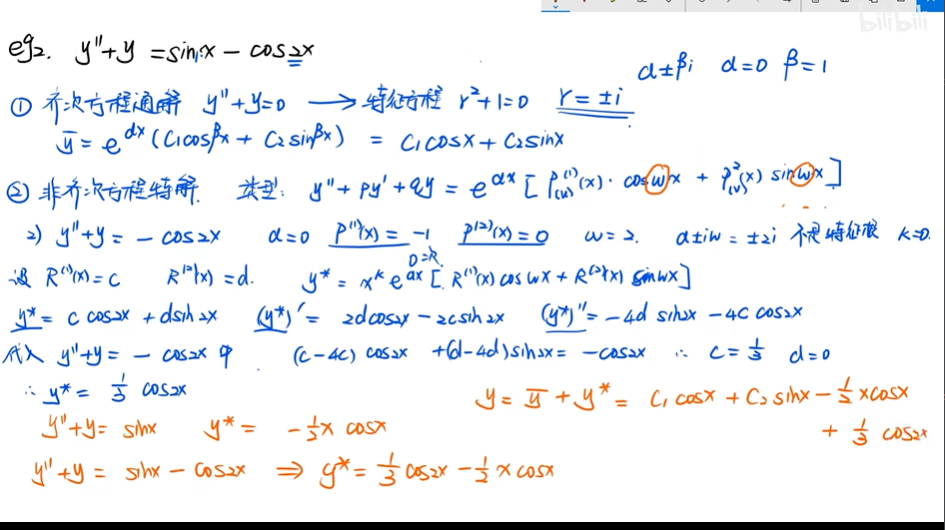 bilibili
eg2. y''+y = sin1x − cos2x
α±βi α=0 β=1
① 齐次方程通解 y''+y=0 → 特征方程 r²+1=0 r=±i
ȳ = e^{αx}(C₁cosβx + C₂sinβx) = C₁cosx + C₂sinx
② 非齐次方程特解. 类型: y''+py'+qy = e^{αx}[P^{(1)}_{(u)}(x)·cosωx + P^{(2)}_{(v)}(x) sinωx]
2) y''+y = −cos2x α=0 P^{(1)}(x)=−1 P^{(2)}(x)=0 ω=2. α±iω=±2i 不是特征根 k=0.
设 R^{(1)}(x)=c R^{(2)}(x)=d. y* = x^k e^{αx}[R^{(1)}(x)cosωx + R^{(2)}(x) sinωx]
y* = c cos2x + d sin2x (y*)' = 2dcos2x − 2csin2x (y*)'' = −4d sin2x − 4c cos2x
代入 y''+y = −cos2x 中 (c−4c) cos2x +(d−4d)sin2x = −cos2x ∴ c=1/3 d=0
∴ y* = 1/3 cos2x
y = ȳ + y* = C₁cosx + C₂sinx − 1/2 xcosx
+ 1/3 cos2x
y''+y = sinx y* = −1/2 x cosx
y''+y = sinx − cos2x ⇒ y* = 1/3 cos2x − 1/2 x cosx